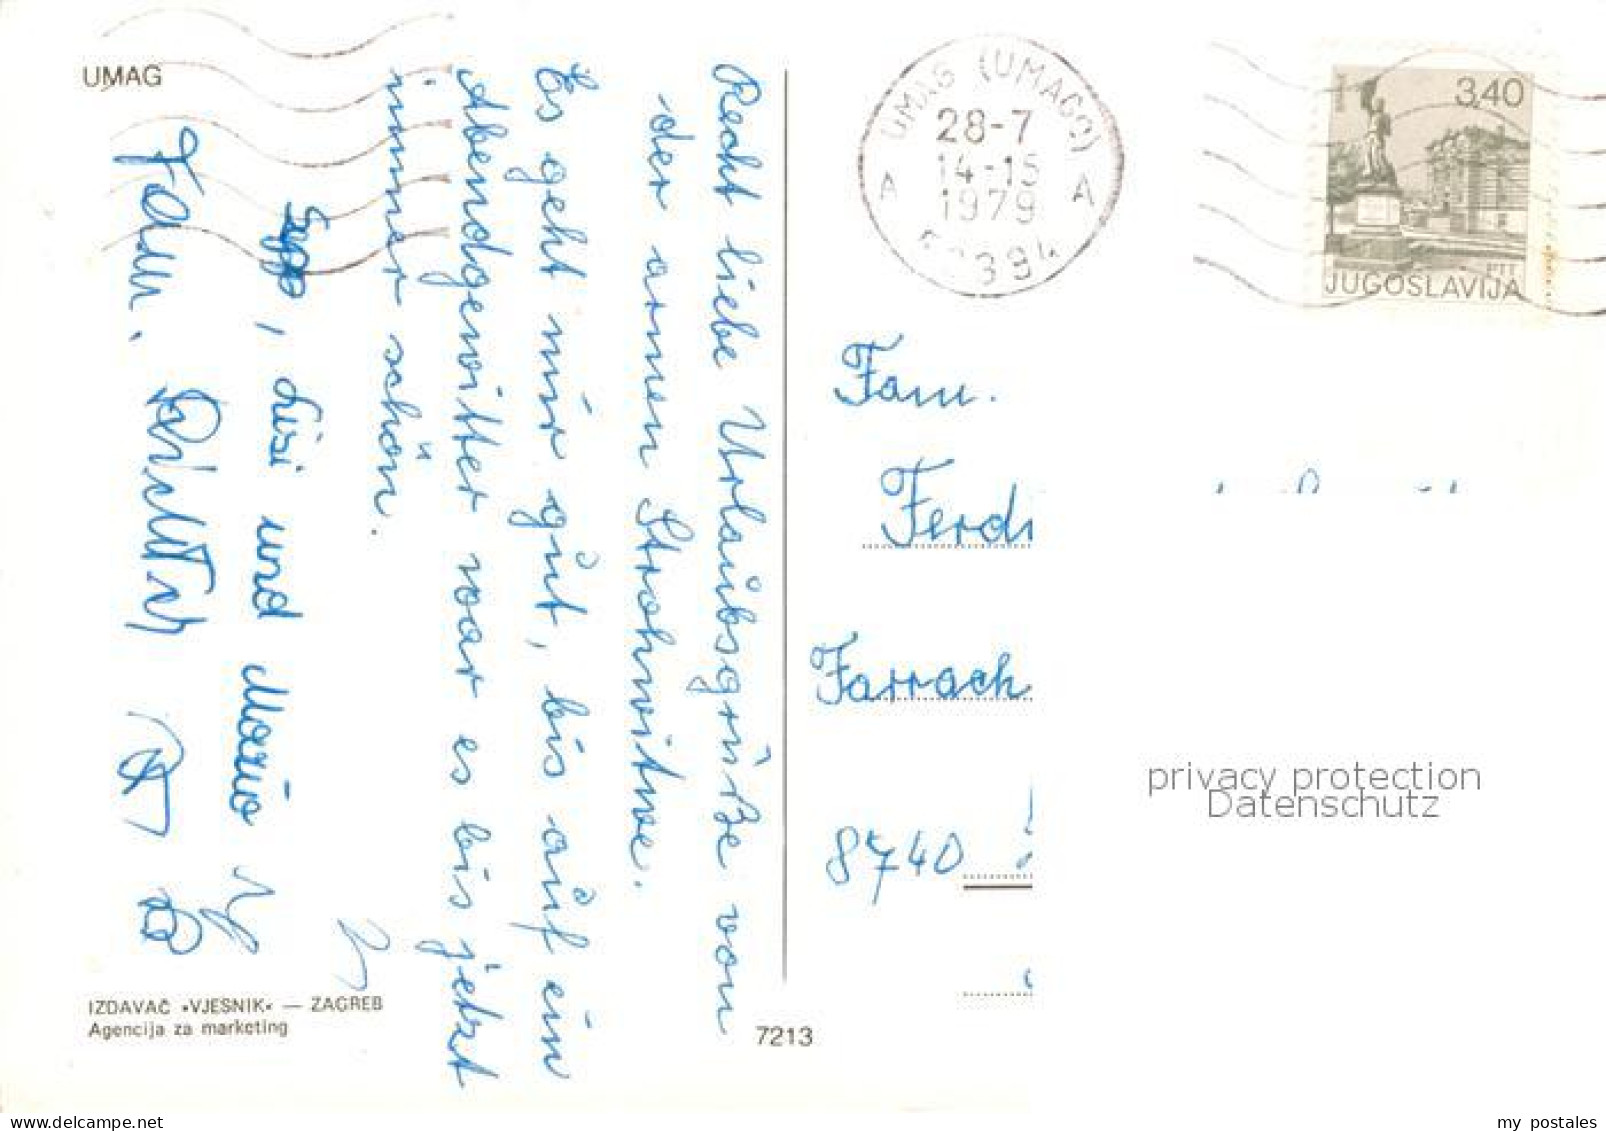 UMAG
Recht liebe Urlaubsgrüße von
der armen Strohwitwe.
Es geht mir gut, bis auf ein
Abendgewitter war es bis jetzt
immer schön.
Sepp, Lisi und Mario
Fam.
IZDAVAČ »VJESNIK« — ZAGREB
Agencija za marketing
7213
UMAG (UMAGO)
28-7
14-15
1979
A A
3,40
PTT
JUGOSLAVIJA
Fam.
Ferdi
Farrach
8740
privacy protection
Datenschutz
my postales